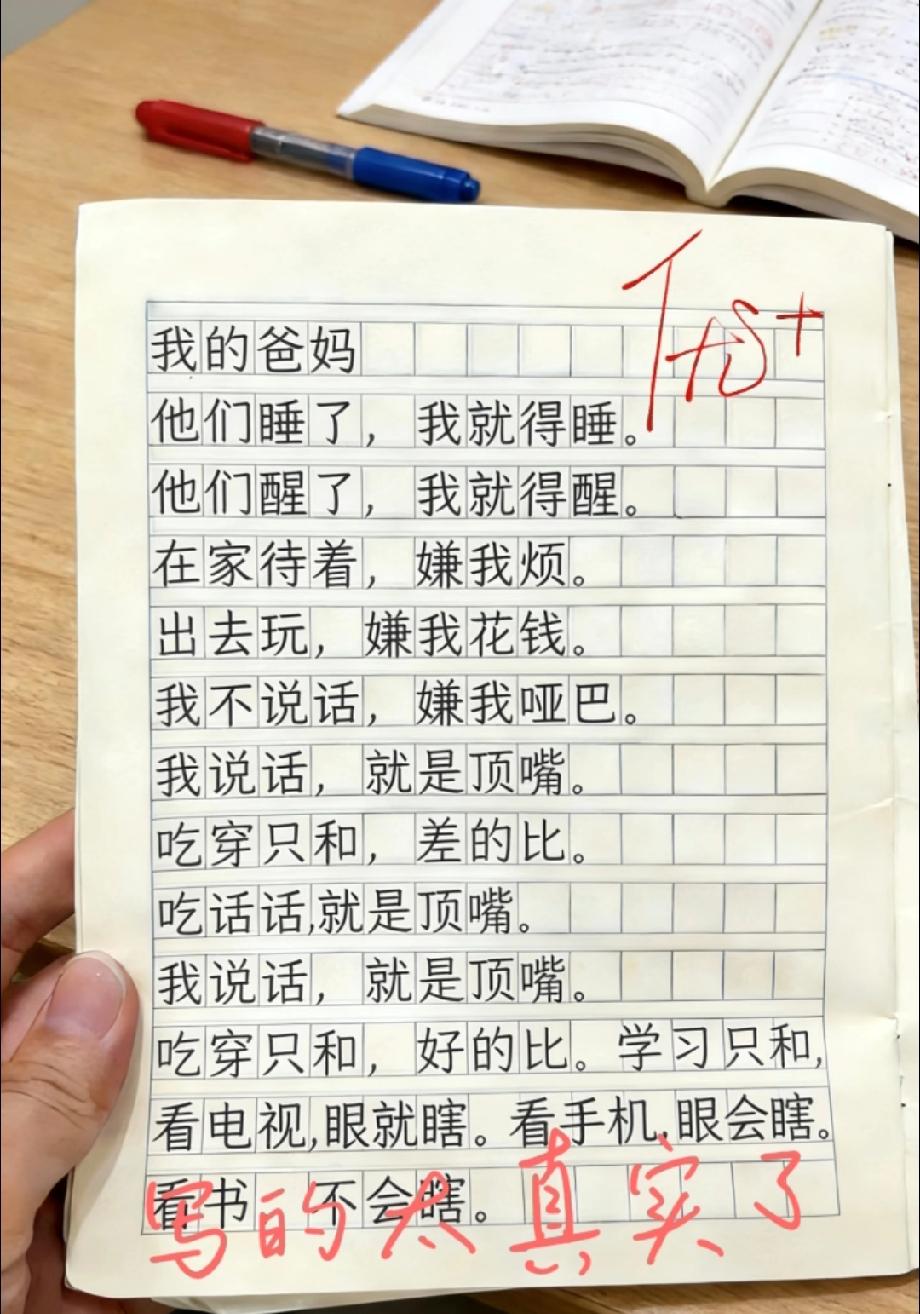 我的爸妈
优+
他们睡了，我就得睡。
他们醒了，我就得醒。
在家待着，嫌我烦。
出去玩，嫌我花钱。
我不说话，嫌我哑巴。
我说话，就是顶嘴。
吃穿只和，差的比。
吃话话,就是顶嘴。
我说话，就是顶嘴。
吃穿只和，好的比。学习只和,
看电视,眼就瞎。看手机,眼会瞎。
看书 不会瞎。
写的太真实了